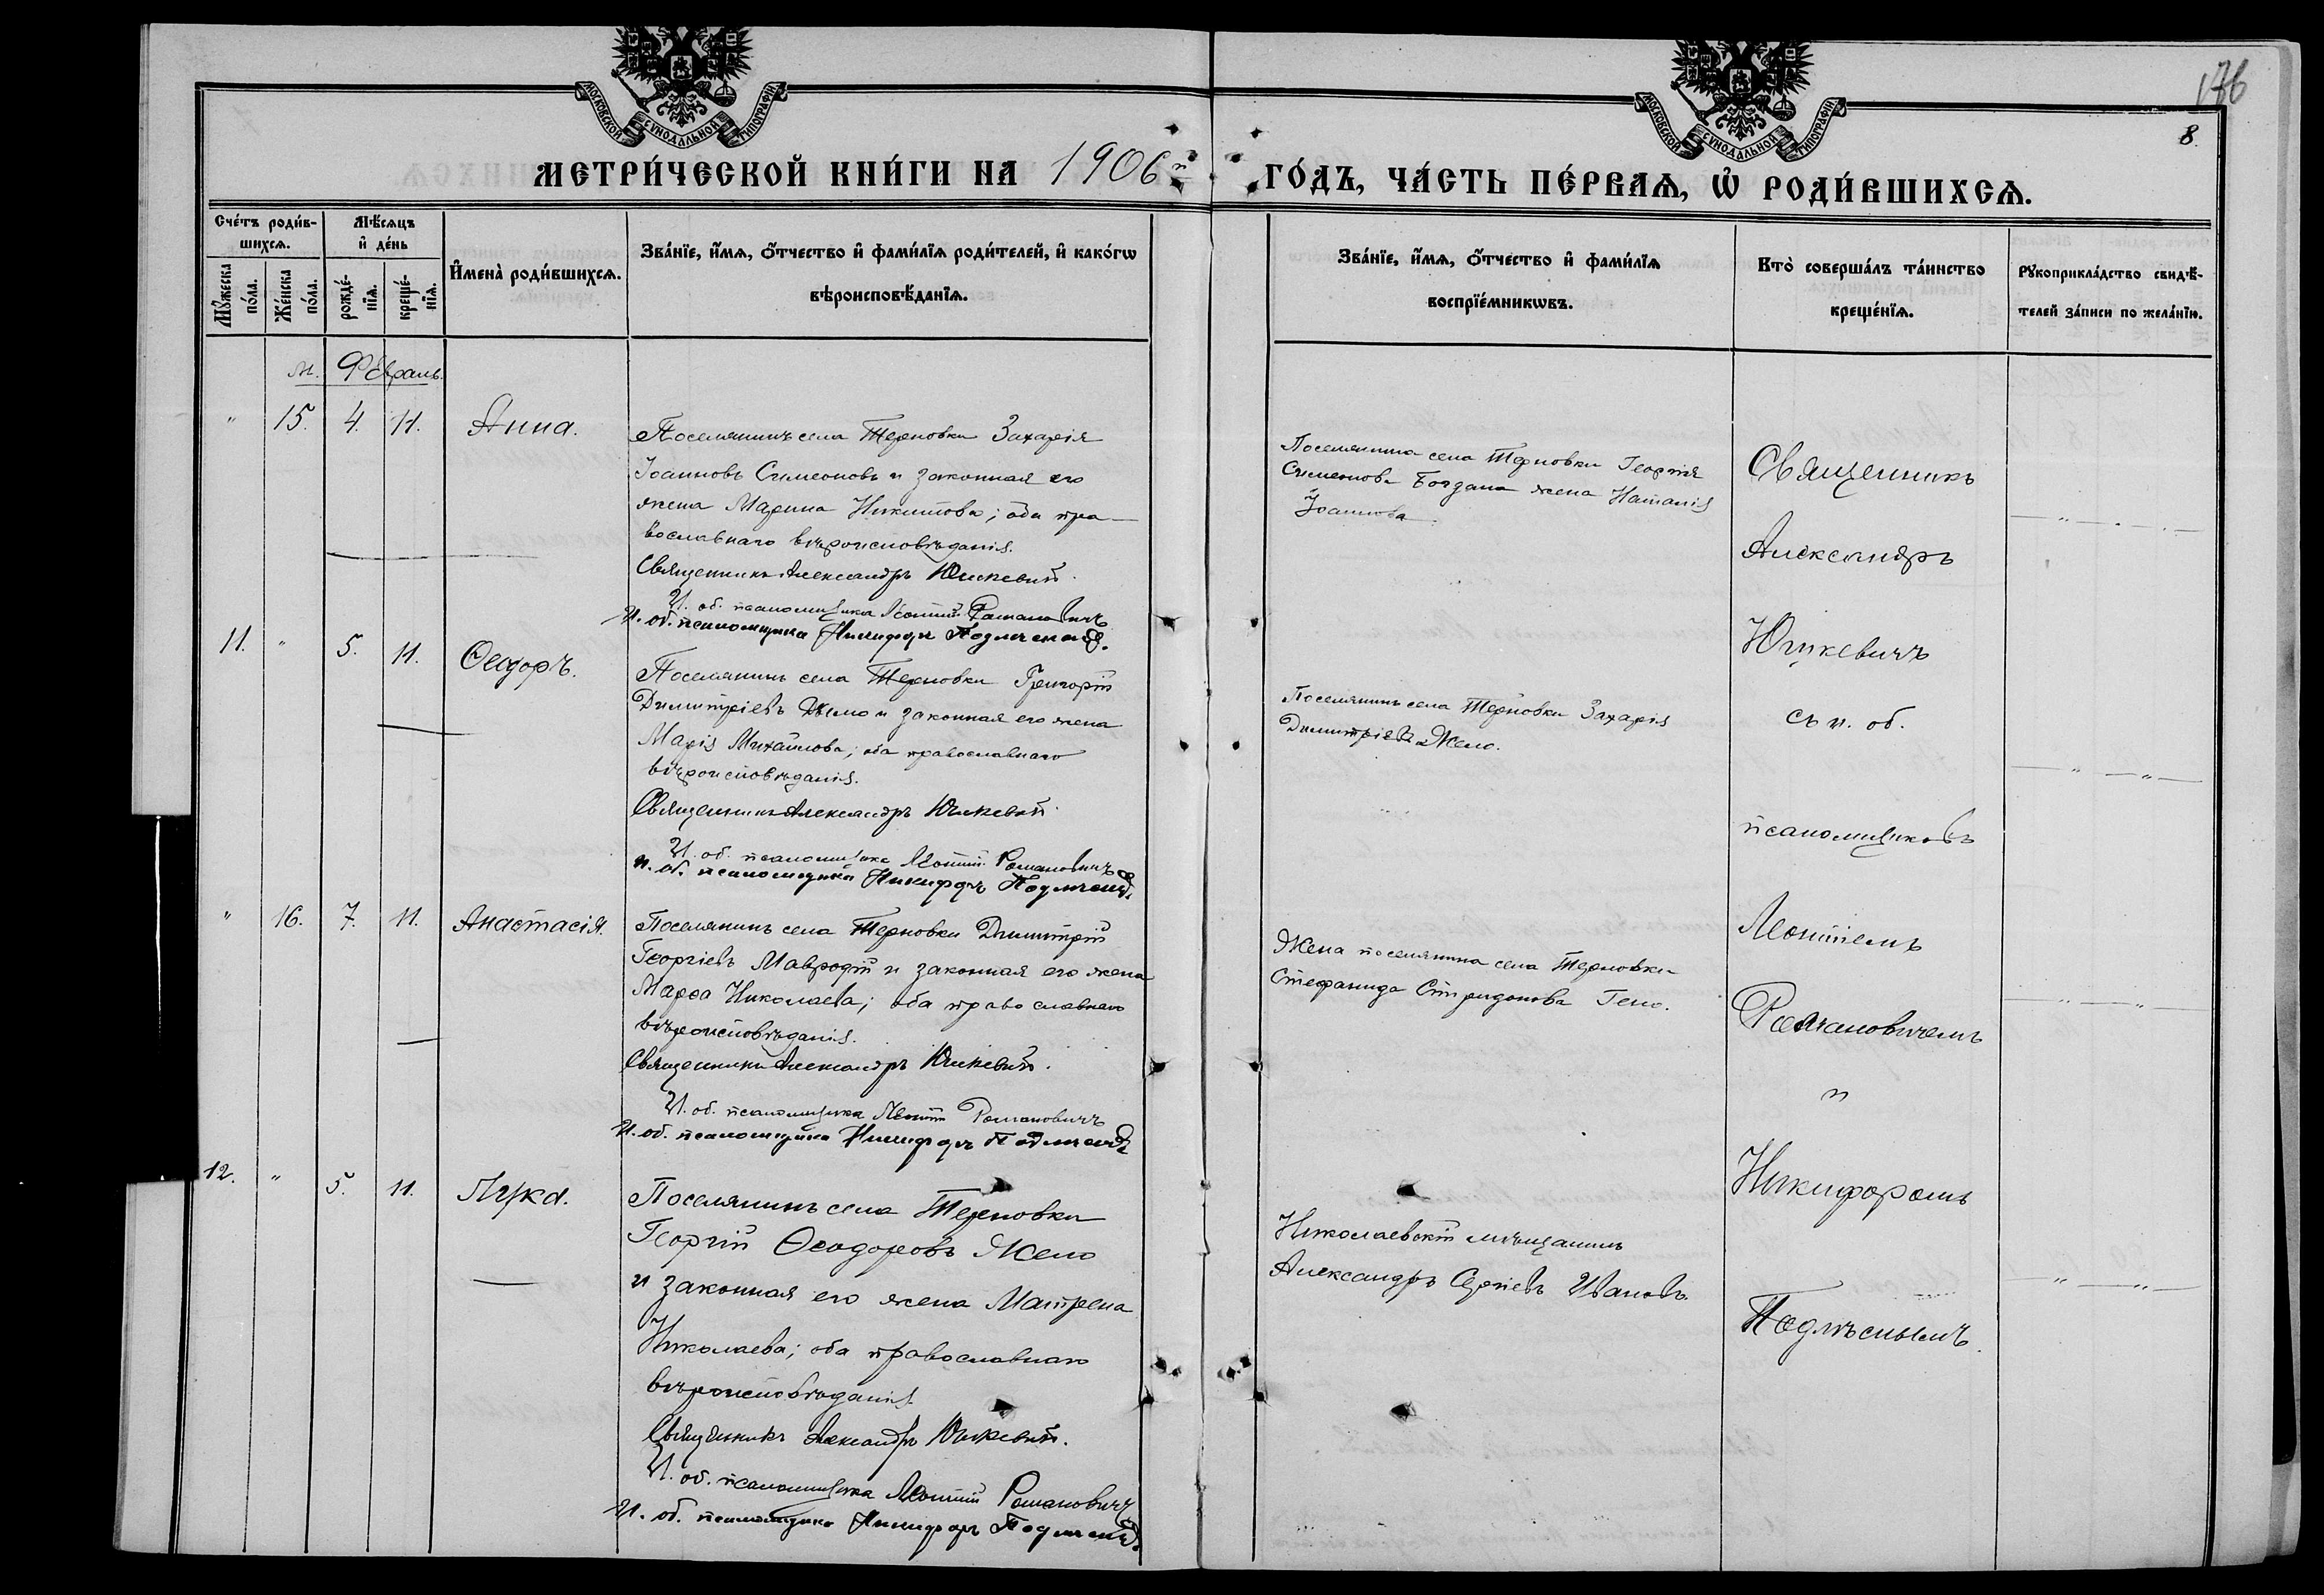 176
8.
МОСКОВСКОЙ СУНОДАЛЬНОЙ ТИПОГРАФІИ
МОСКОВСКОЙ СУНОДАЛЬНОЙ ТИПОГРАФІИ
МЕТРИ́ЧЕСКОЙ КНИ́ГИ НА 1906й ГО́ДЪ, ЧА́СТЬ ПЕ́РВАѦ, Ѡ҆ РОДИ́ВШИХСѦ.
Сче́тъ роди́в-
шихсѧ.
Мѣ́сѧцъ
и҆ де́нь
Мꙋ́жеска
по́ла.
Же́нска
по́ла.
рожде́-
нїѧ.
креще́-
нїѧ.
И҆мена̀ роди́вшихсѧ.
Зва́нїе, и҆́мѧ, ѻ҆́тчество и҆ фами́лїѧ роди́телей, и҆ како́гѡ
вѣроисповѣ́данїѧ.
Зва́нїе, и҆́мѧ, ѻ҆́тчество и҆ фами́лїѧ
воспрїе́мникѡвъ.
Кто̀ соверша́лъ та́инство
креще́нїѧ.
Рꙋкоприкла́дство свидѣ́-
телей за́писи по жела́нїю.
м. Февраль.
" 15. 4. 11. Анна.
Поселянинъ села Терновки Захарія
Іоанновъ Симеоновъ и законная его
жена Марина Никитова; оба пра-
вославнаго вѣроисповѣданія.
Священникъ Александръ Юшкевичъ.
И. об. псаломщика Леонтій Романовичъ
И. об. псаломщика Никифоръ Подлѣсный.
Поселянина села Терновки Георгія
Симеонова Богдана жена Наталія
Іоаннова.
11. " 5. 11. Ѳеодоръ.
Поселянинъ села Терновки Григорій
Димитріевъ Жело и законная его жена
Марія Михайлова; оба православнаго
вѣроисповѣданія.
Священникъ Александръ Юшкевичъ.
И. об. псаломщика Леонтій Романовичъ
И. об. псаломщика Никифоръ Подлѣсный.
Поселянинъ села Терновки Захарія
Димитріевъ Жело.
" 16. 7. 11. Анастасія.
Поселянинъ села Терновки Димитрій
Георгіевъ Мавродій и законная его жена
Марѳа Николаева; оба православнаго
вѣроисповѣданія.
Священникъ Александръ Юшкевичъ.
И. об. псаломщика Леонтій Романовичъ
И. об. псаломщика Никифоръ Подлѣсный
Жена поселянина села Терновки
Стефанида Спиридонова Гено.
12. " 5. 11. Лука.
Поселянинъ села Терновки
Георгій Ѳеодоровъ Жело
и законная его жена Матрена
Николаева; оба православнаго
вѣроисповѣданія
Священникъ Александръ Юшкевичъ.
И. об. псаломщика Леонтій Романовичъ
И. об. псаломщика Никифоръ Подлѣсный.
Николаевскій мѣщанинъ
Александръ Сергіевъ Ивановъ.
Священникъ
Александръ
Юшкевичъ
съ и. об.
псаломщиковъ
Леонтіемъ
Романовичемъ
и
Никифоромъ
Подлѣснымъ.